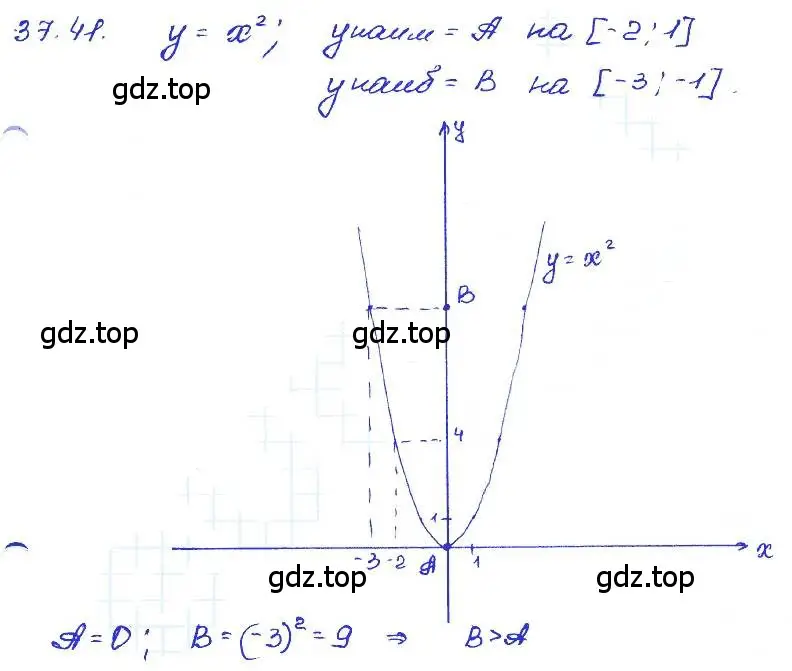 37.41. y = x²; yнаим = A на [-2; 1]
yнаиб = B на [-3; -1].
gdz.top
y
y = x²
B
gdz.top
gdz.top
4
1
-3 -2 A 1 x
gdz.top
gdz.top
A = 0; B = (-3)² = 9 ⇒ B > A